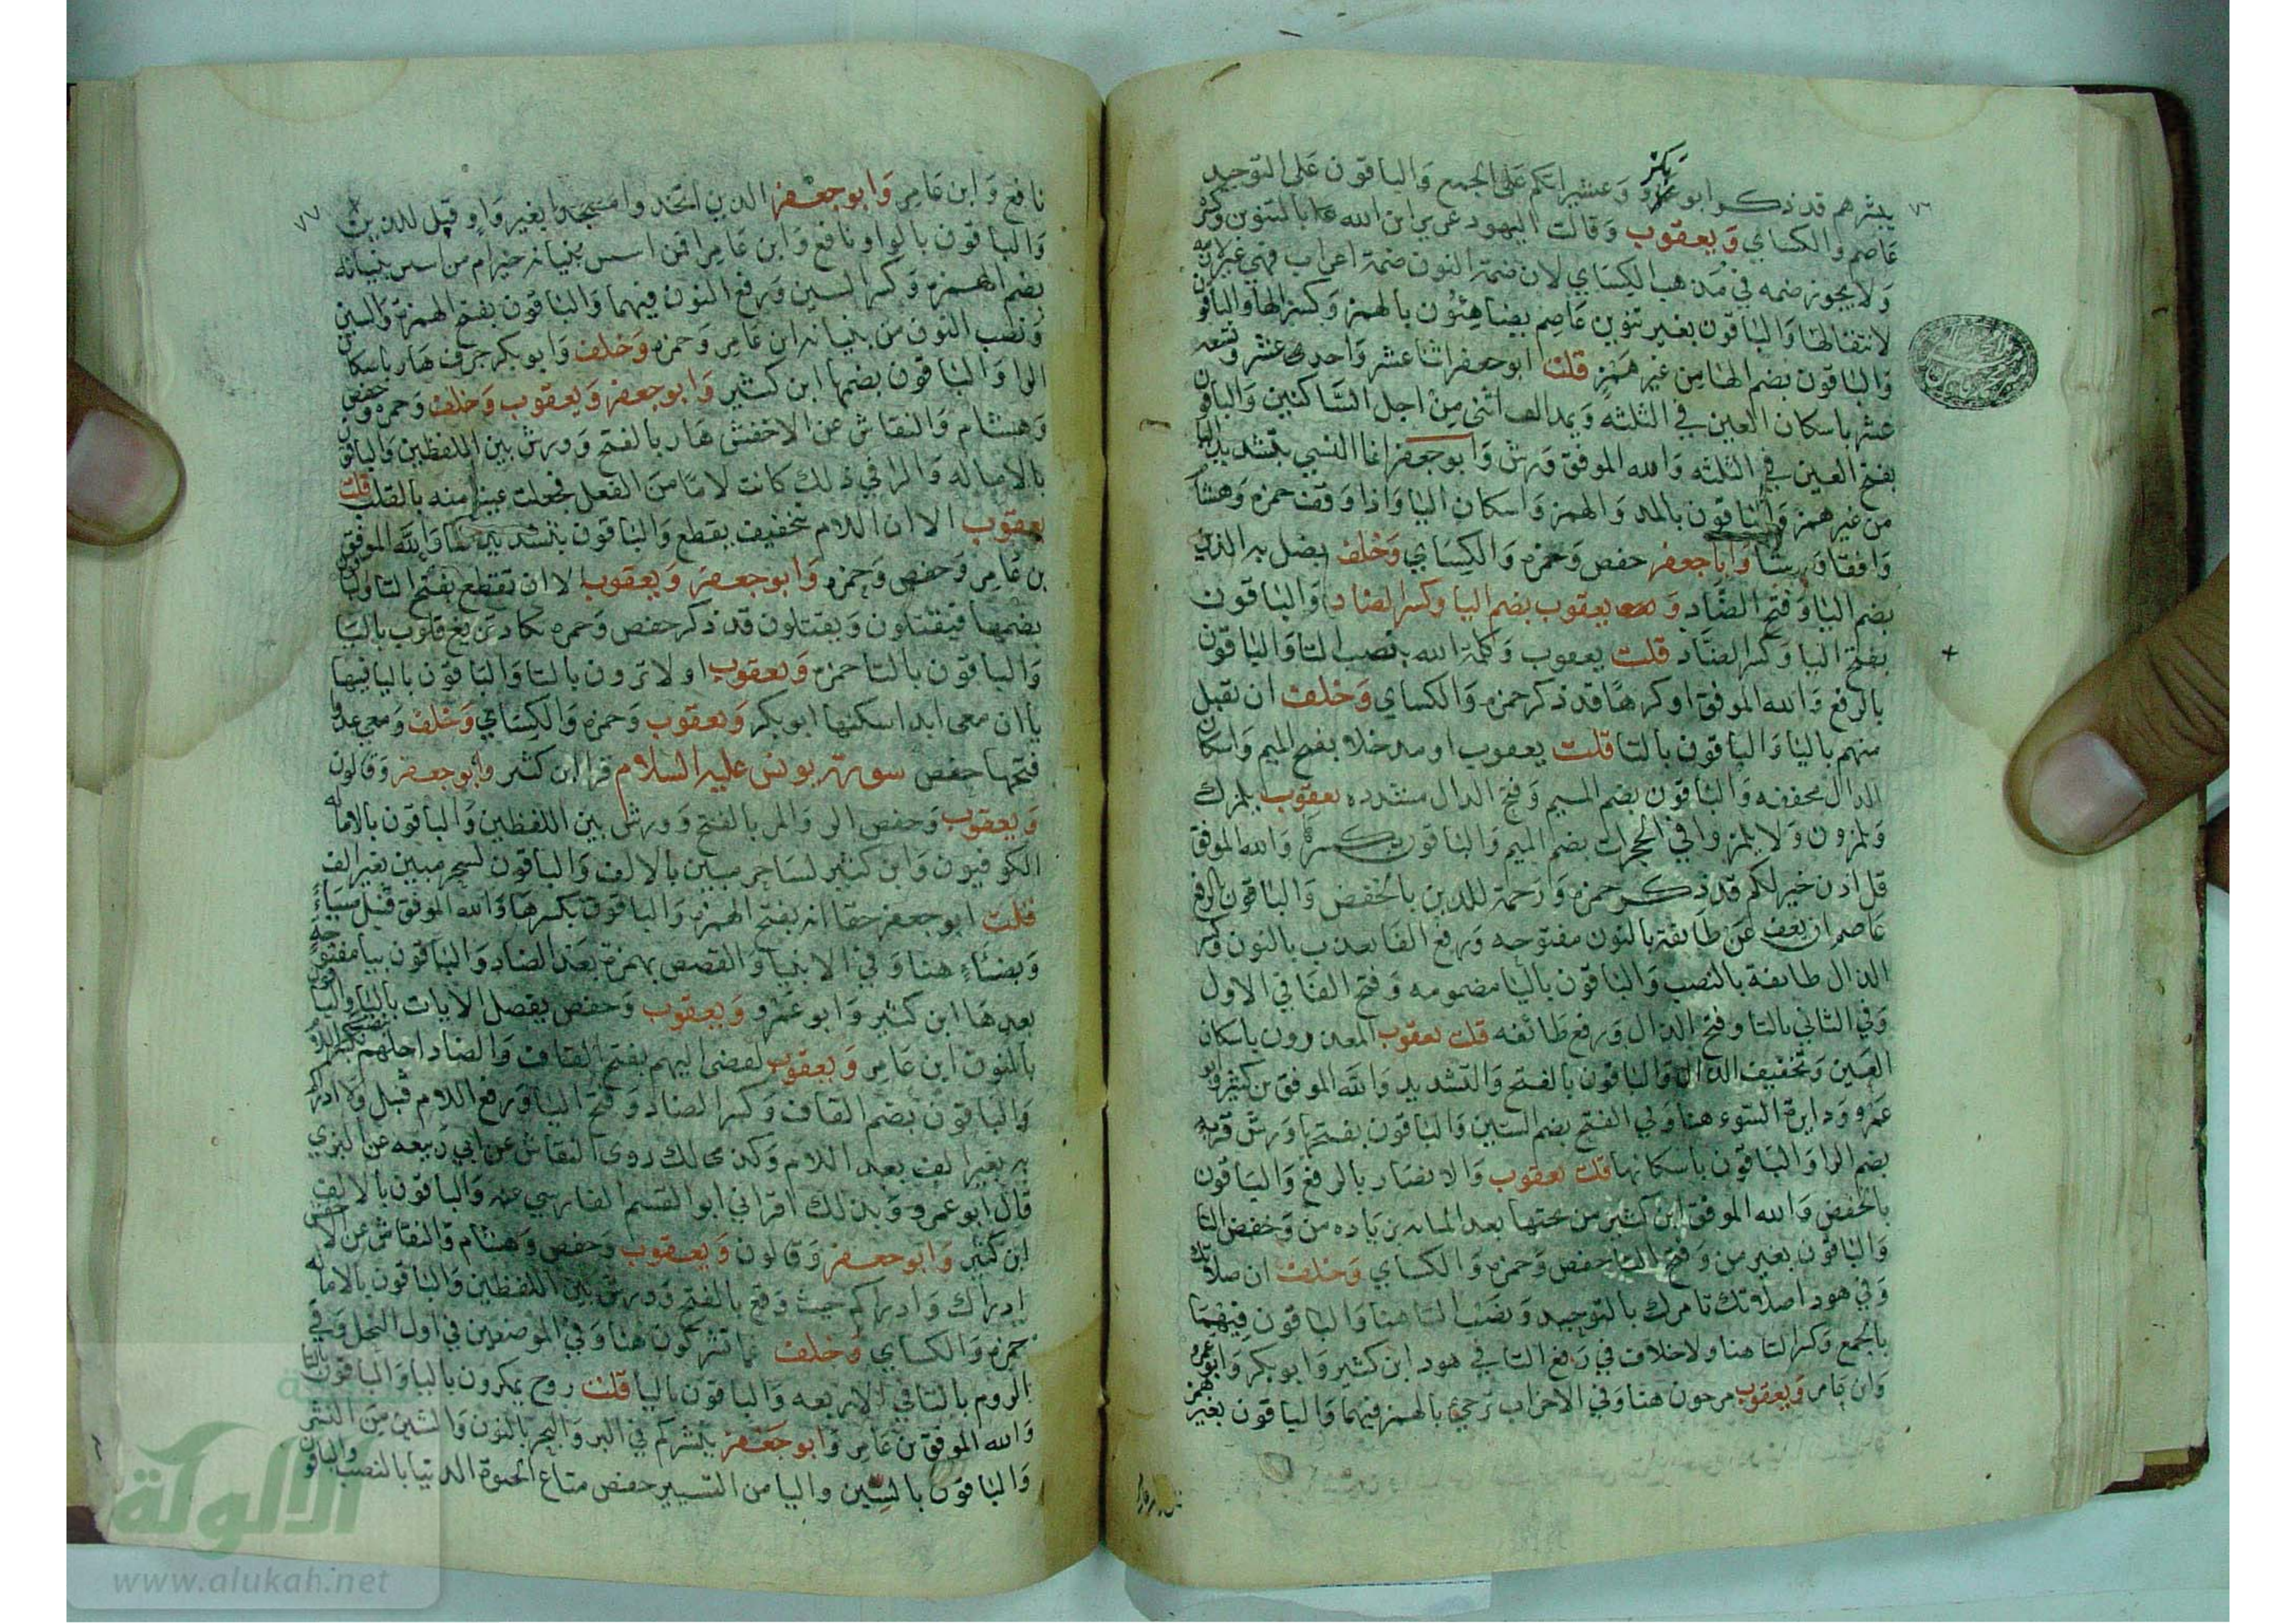 ٧٦
يبشرهم قد ذكر ابو بكر وعشيراتكم على الجمع والباقون على التوحيد
عاصم والكساي ويعقوب وقالت اليهود عزير ابن الله بالتنوين وكسره
ولا يجوز ضمه في مذهب الكساي لان ضمة النون ضمة اعراب فهي غير لازمة
لانتقالها والباقون بغير تنوين عاصم يضاهئون بالهمز وكسر الها والباقون
والباقون بضم الها من غير همز قلت ابو جعفر اثنا عشر واحد عشر وتسعة
عشر باسكان العين في الثلثه ويمد الف اثنى من اجل الساكنين والباقون
بفتح العين في الثلثه والله الموفق ورش وابو جعفر انما النسي بتشديد اليا
من غير همز والباقون بالمد والهمز واسكان اليا واذا وقف حمزه وهشام
وافقا ورشا وابا جعفر حفص وحمزه والكساي وخلف يضل به الذين
بضم اليا وفتح الضاد ويعقوب بضم اليا وكسر الضاد والباقون
بفتح اليا وكسر الضاد قلت يعقوب وكلمة الله بنصب التا والباقون
بالرفع والله الموفق او كرها قد ذكر حمزه والكساي وخلف ان يقبل
منهم باليا والباقون بالتا قلت يعقوب او مدخلا بفتح الميم واسكان
الدال مخففه والباقون بضم الميم وفتح الدال مشدده يعقوب يلمزك
ويلمزون ولا تلمزوا في الحجرات بضم الميم والباقون بكسرها والله الموفق
قل اذن خير لكم قد ذكر حمزه ورحمة للذين بالخفض والباقون بالرفع
عاصم ان نعف عن طائفة بالنون مفتوحه ورفع الفا نعذب بالنون وكسر
الذال طائفة بالنصب والباقون باليا مضمومه وفتح الفا في الاول
وفي الثاني بالتا وفتح الذال ورفع طائفه قلت يعقوب المعذرون باسكان
العين وتخفيف الذال والباقون بالفتح والتشديد والله الموفق بن كثير وابو
عمرو دايرة السوء هنا وفي الفتح بضم السين والباقون بفتحها ورش قربة
بضم الرا والباقون باسكانها قلت يعقوب والانصار بالرفع والباقون
بالخفض والله الموفق ابن كثير من تحتها بعد المايه بزياده من وخفض التا
والباقون بغير من وفتح التا حفص وحمزه والكساي وخلف ان صلاتك
وفي هود اصلاتك تامرك بالتوحيد ونصب التا هنا والباقون فيهما
بالجمع وكسر التا هنا ولا خلاف في رفع التا في هود ابن كثير وابو بكر وابو عمرو
وابن عامر ويعقوب مرجون هنا وفي الاحزاب ترجئ بالهمز فيهما والباقون بغير همز
٧٧
نافع وابن عامر وابو جعفر الذين اتخدوا مسجدا بغير واو قبل للذين
والباقون بالواو نافع وابن عامر افمن اسس بنيانه خير ام من اسس بنيانه
بضم الهمزه وكسر السين ورفع النون فيهما والباقون بفتح الهمزة والسين
ونصب النون من بنيانه ابن عامر وحمزه وخلف وابو بكر جرف هار باسكان
الرا والباقون بضمها ابن كثير وابو جعفر ويعقوب وخلف وحمزه وحفص
وهشام والنقاش عن الاخفش هار بالفتح وورش بين اللفظين والباقون
بالاماله والرا في ذلك كانت لاما من الفعل فجعلت عينا منه بالقلب قلت
يعقوب الا ان اللام تخفيف يقطع والباقون بتشديدها والله الموفق
بن عامر وحفص وحمزه وابو جعفر ويعقوب الا ان تقطع بفتح التا والباقون
بضمها فيقتلون ويقتلون قد ذكر حفص وحمزه كاد تزيغ قلوب باليا
والباقون بالتا حمزه ويعقوب اولا ترون بالتا والباقون باليا فيها
ياان معى ابدا اسكنها ابو بكر ويعقوب وحمزه والكساي وخلف ومعي عدوا
فتحها حفص سورة يونس عليه السلام قرا ابن كثير وابو جعفر وقالون
ويعقوب وحفص الر والمر بالفتح وورش بين اللفظين والباقون بالاماله
الكوفيون وابن كثير لساحر مبين بالالف والباقون لسحر مبين بغير الف
قلت ابو جعفر حقا انه بفتح الهمزه والباقون بكسرها والله الموفق قنبل ضياء
وبضئاء هنا وفي الانبيا والقصص بهمزة بعد الضاد والباقون بيا مفتوحة
بعدها ابن كثير وابو عمرو ويعقوب وحفص يفصل الايات باليا والباقون
بالنون ابن عامر ويعقوب لقضى اليهم بفتح القاف والضاد اجلهم بنصب اللام
والباقون بضم القاف وكسر الضاد وفتح اليا ورفع اللام قنبل ولادراكم
به بغير الف بعد اللام وكذلك روى النقاش عن ابي ربيعه عن البزي
قال ابو عمرو وبذلك اقراني ابو القسم الفارسي عنه والباقون بالالف
ابن كثير وابو جعفر وقالون ويعقوب وحفص وهشام والنقاش عن الاخفش
ادراك وادراكم حيث وقع بالفتح وورش بين اللفظين والباقون بالاماله
حمزه والكساي وخلف عما تشركون هنا وفي الموضعين في اول النحل وفي
الروم بالتا في الاربعه والباقون باليا قلت روح يمكرون باليا والباقون بالتا
والله الموفق بن عامر وابو جعفر ينشركم في البر والبحر بالنون والشين من النشر
والباقون بالسين واليا من التسيير حفص متاع الحيوة الدنيا بالنصب والباقون
الألوكة
www.alukah.net